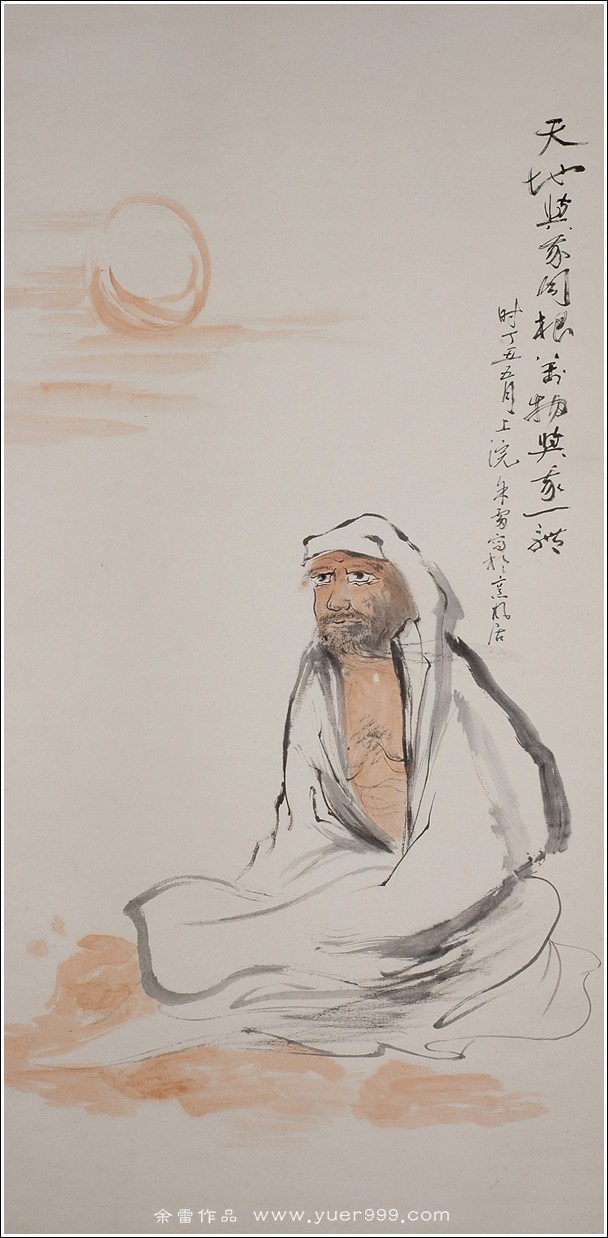 天地與我同根萬物與我一體
时丁丑五月上浣余雷寫於居
余雷作品 www.yuer999.com